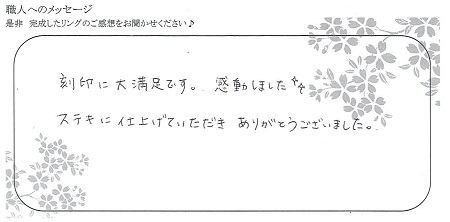 職人へのメッセージ
是非 完成したリングのご感想をお聞かせください♪
刻印に大満足です。感動しました✨
ステキに仕上げていただき ありがとうございました。